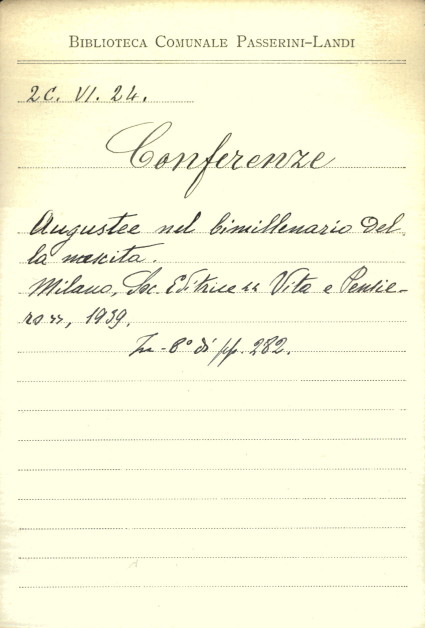 BIBLIOTECA COMUNALE PASSERINI-LANDI
2C. VI. 24.
Conferenze
Augustee nel bimillenario del-
la nascita.
Milano, Soc. Editrice "Vita e Pensie-
ro", 1939.
In-8° di pp. 282.